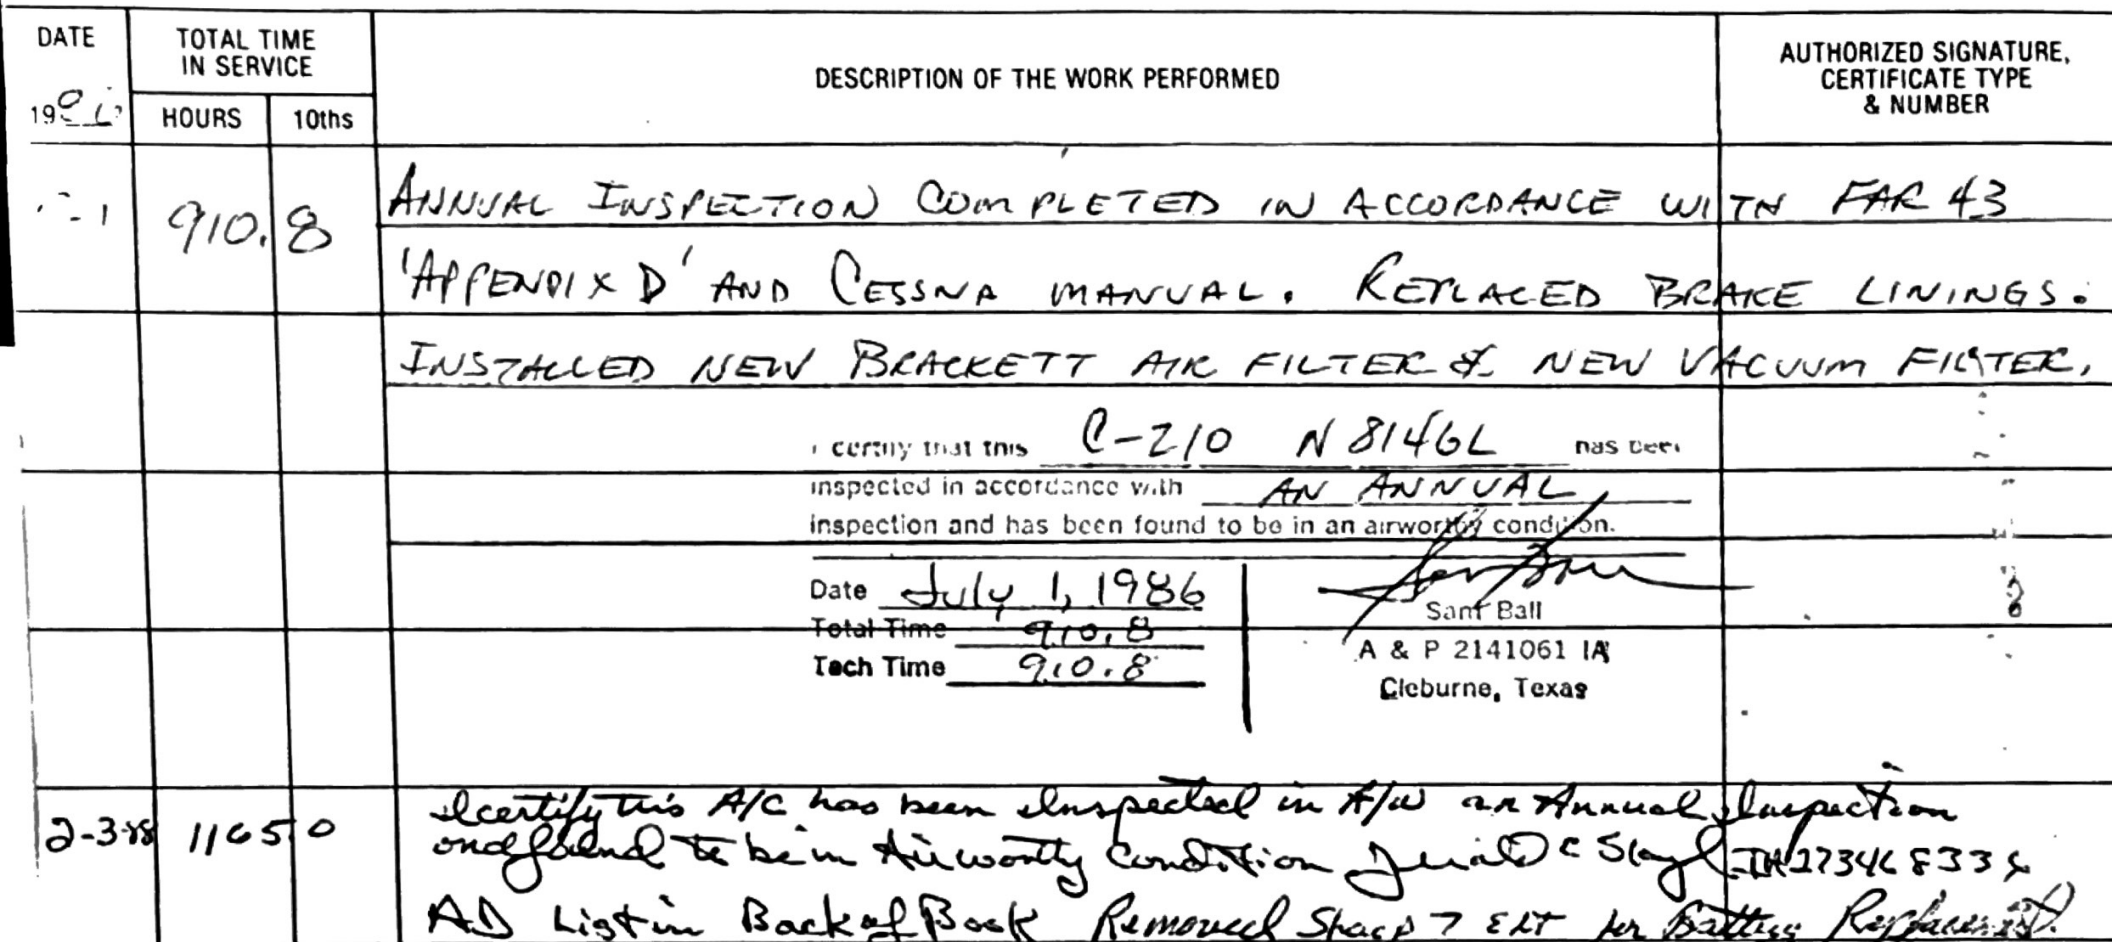 DATE
TOTAL TIME
IN SERVICE
DESCRIPTION OF THE WORK PERFORMED
AUTHORIZED SIGNATURE,
CERTIFICATE TYPE
& NUMBER
19
HOURS
10ths
910.8
ANNUAL INSPECTION COMPLETED IN ACCORDANCE WITH FAR 43
'APPENDIX D' AND CESSNA MANUAL. REPLACED BRAKE LININGS.
INSTALLED NEW BRACKETT AIR FILTER & NEW VACUUM FILTER.
I certify that this C-210 N8146L has been
inspected in accordance with AN ANNUAL
inspection and has been found to be in an airworthy condition.
Date July 1, 1986
Total Time 910.8
Tach Time 910.8
Sam Ball
A & P 2141061 IA
Cleburne, Texas
2-3-88 1165 0 I certify this A/C has been Inspected in A/W an Annual Inspection
and found to be in Airworthy Condition
AD List in Back of Book Removed Sharp 7 ELT for Battery Replacement.